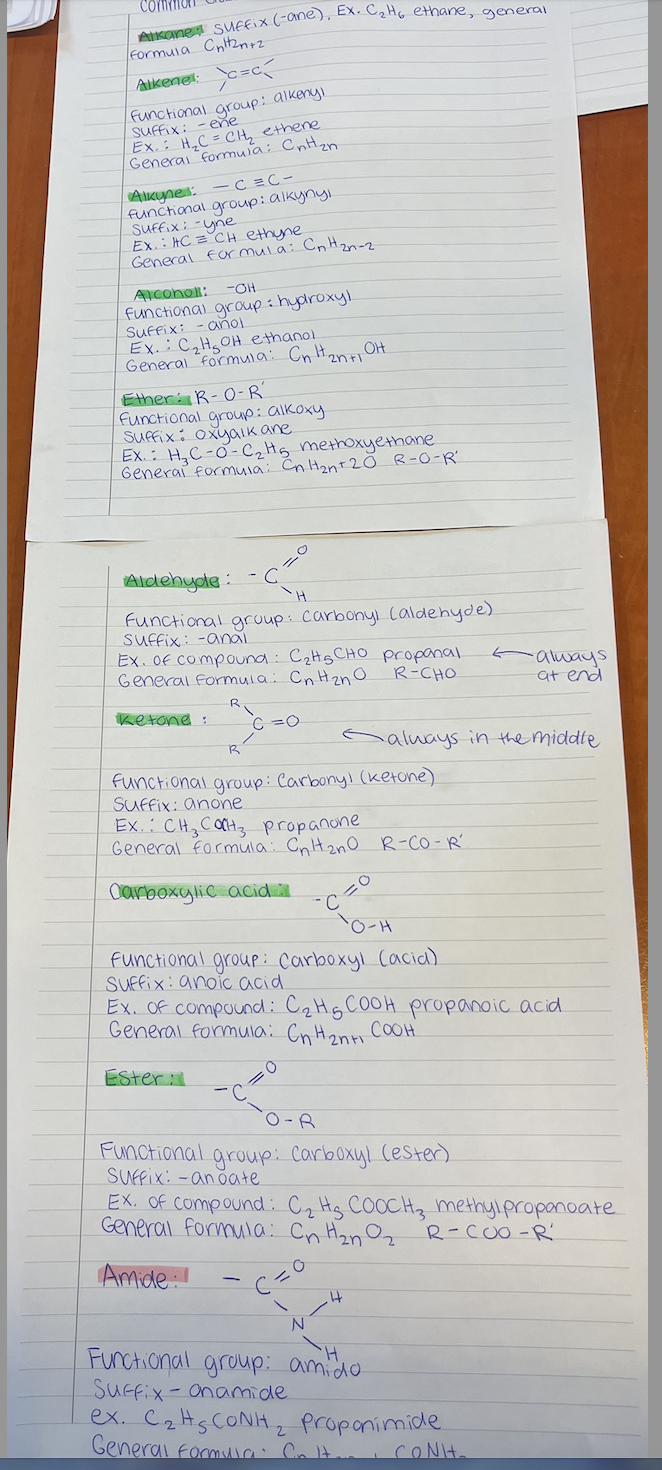 common
Alkane: suffix (-ane), Ex. C₂H₆ ethane, general
formula CnH2n+2
Alkene: C=C
functional group: alkenyl
suffix: -ene
Ex.: H₂C=CH₂ ethene
General formula: CnH2n
Alkyne: -C≡C-
functional group: alkynyl
suffix: -yne
Ex.: HC≡CH ethyne
General formula: CnH2n-2
Alcohol: -OH
functional group: hydroxyl
suffix: -anol
Ex.: C₂H₅OH ethanol
General formula: CnH2n+1OH
Ether: R-O-R'
functional group: alkoxy
suffix: oxyalkane
Ex.: H₃C-O-C₂H₅ methoxyethane
General formula: CnH2n+2O R-O-R'
O
Aldehyde: -C
H
Functional group: carbonyl (aldehyde)
suffix: -anal
Ex. of compound: C₂H₅CHO propanal ← always
General formula: CnH2nO R-CHO at end
R
Ketone: C=O
R'
← always in the middle
functional group: carbonyl (ketone)
suffix: anone
Ex.: CH₃COCH₃ propanone
General formula: CnH2nO R-CO-R'
O
Carboxylic acid: -C
O-H
functional group: carboxyl (acid)
suffix: anoic acid
Ex. of compound: C₂H₅COOH propanoic acid
General formula: CnH2n+1COOH
O
Ester: -C
O-R
Functional group: carboxyl (ester)
suffix: -anoate
Ex. of compound: C₂H₅COOCH₃ methylpropanoate
General formula: CnH2nO₂ R-COO-R'
O
Amide: -C
H
N
H
Functional group: amido
suffix - anamide
ex. C₂H₅CONH₂ propanimide
General formula: CnH CONH₂